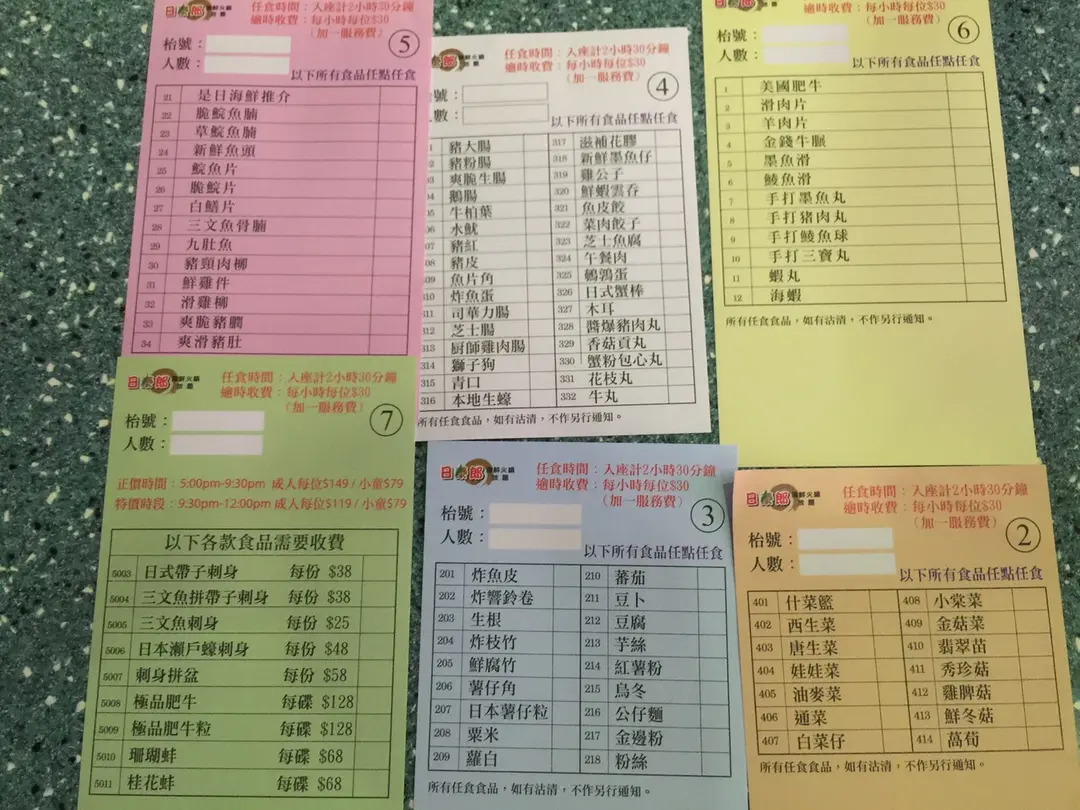 任食時間：入座計2小時30分鐘
逾時收費：每小時每位$30
（加一服務費）
⑤
枱號：
人數：
以下所有食品任點任食
21 是日海鮮推介
22 脆鯇魚腩
23 草鯇魚腩
24 新鮮魚頭
25 鯇魚片
26 脆鯇片
27 白鱔片
28 三文魚骨腩
29 九肚魚
30 豬頸肉柳
31 鮮雞件
32 滑雞柳
33 爽脆豬膶
34 爽滑豬肚
郎 火鍋
任食時間：入座計2小時30分鐘
逾時收費：每小時每位$30
（加一服務費）
④
號：
數：
以下所有食品任點任食
1 豬大腸 317 滋補花膠
2 豬粉腸 318 新鮮墨魚仔
03 爽脆生腸 319 雞公子
04 鵝腸 320 鮮蝦雲吞
05 牛柏葉 321 魚皮餃
06 水魷 322 菜肉餃子
07 豬紅 323 芝士魚腐
08 豬皮 324 午餐肉
09 魚片角 325 鵪鶉蛋
310 炸魚蛋 326 日式蟹棒
311 司華力腸 327 木耳
312 芝士腸 328 醬爆豬肉丸
313 厨師雞肉腸 329 香菇貢丸
314 獅子狗 330 蟹粉包心丸
315 青口 331 花枝丸
316 本地生蠔 332 牛丸
所有任食食品，如有沽清，不作另行通知。
逾時收費：每小時每位$30
（加一服務費）
⑥
枱號：
人數：
以下所有食品任點任食
1 美國肥牛
2 滑肉片
3 羊肉片
4 金錢牛脤
5 墨魚滑
6 鯪魚滑
7 手打墨魚丸
8 手打豬肉丸
9 手打鯪魚球
10 手打三寶丸
11 蝦丸
12 海蝦
所有任食食品，如有沽清，不作另行通知。
日泰郎 海鮮火鍋
放題
任食時間：入座計2小時30分鐘
逾時收費：每小時每位$30
（加一服務費）
⑦
枱號：
人數：
正價時間：5:00pm-9:30pm 成人每位$149 / 小童$79
特價時段：9:30pm-12:00pm 成人每位$119 / 小童$79
以下各款食品需要收費
5003 日式帶子刺身 每份 $38
5004 三文魚拼帶子刺身 每份 $38
5005 三文魚刺身 每份 $25
5006 日本瀨戶蠔刺身 每份 $48
5007 刺身拼盆 每份 $58
5008 極品肥牛 每碟 $128
5009 極品肥牛粒 每碟 $128
5010 珊瑚蚌 每碟 $68
5011 桂花蚌 每碟 $68
日泰郎 海鮮火鍋
放題
任食時間：入座計2小時30分鐘
逾時收費：每小時每位$30
（加一服務費）
③
枱號：
人數：
以下所有食品任點任食
201 炸魚皮 210 蕃茄
202 炸響鈴卷 211 豆卜
203 生根 212 豆腐
204 炸枝竹 213 芋絲
205 鮮腐竹 214 紅薯粉
206 薯仔角 215 烏冬
207 日本薯仔粒 216 公仔麵
208 粟米 217 金邊粉
209 蘿白 218 粉絲
所有任食食品，如有沽清，不作另行通知。
日泰郎 海鮮火鍋
放題
任食時間：入座計2小時30分鐘
逾時收費：每小時每位$30
（加一服務費）
②
枱號：
人數：
以下所有食品任點任食
401 什菜籃 408 小棠菜
402 西生菜 409 金菇菜
403 唐生菜 410 翡翠苗
404 娃娃菜 411 秀珍菇
405 油麥菜 412 雞脾菇
406 通菜 413 鮮冬菇
407 白菜仔 414 萵筍
所有任食食品，如有沽清，不作另行通知。